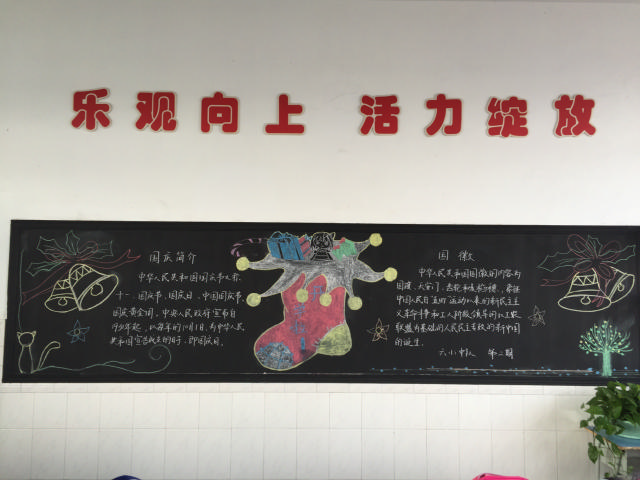 乐观向上 活力绽放
国庆简介
中华人民共和国国庆节又称
十一、国庆节、国庆日、中国国庆节、
国庆黄金周。中央人民政府宣布自
1949年起，以每年的10月1日，为中华人民
共和国宣告成立的日子，即国庆日。
国徽
中华人民共和国国徽的内容为
国旗、天安门、齿轮和麦稻穗，象征
中国人民自"五四"运动以来的新民主主
义革命斗争和工人阶级领导的以工农
联盟为基础的人民民主专政的新中国
的诞生。
六小中队 第二期